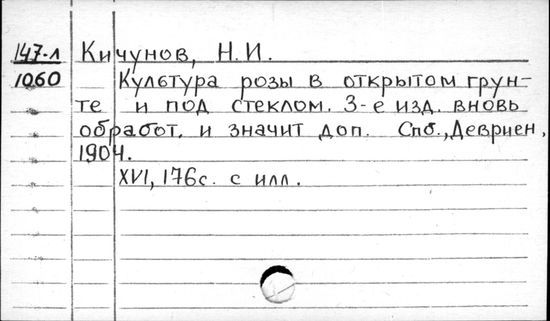 147-л Кичунов, Н.И.
1060 Культура розы в открытом грун-
те и под стеклом. 3-е изд. вновь
обработ. и значит доп. Спб., Девриен,
1904.
XVI, 176с. с илл.